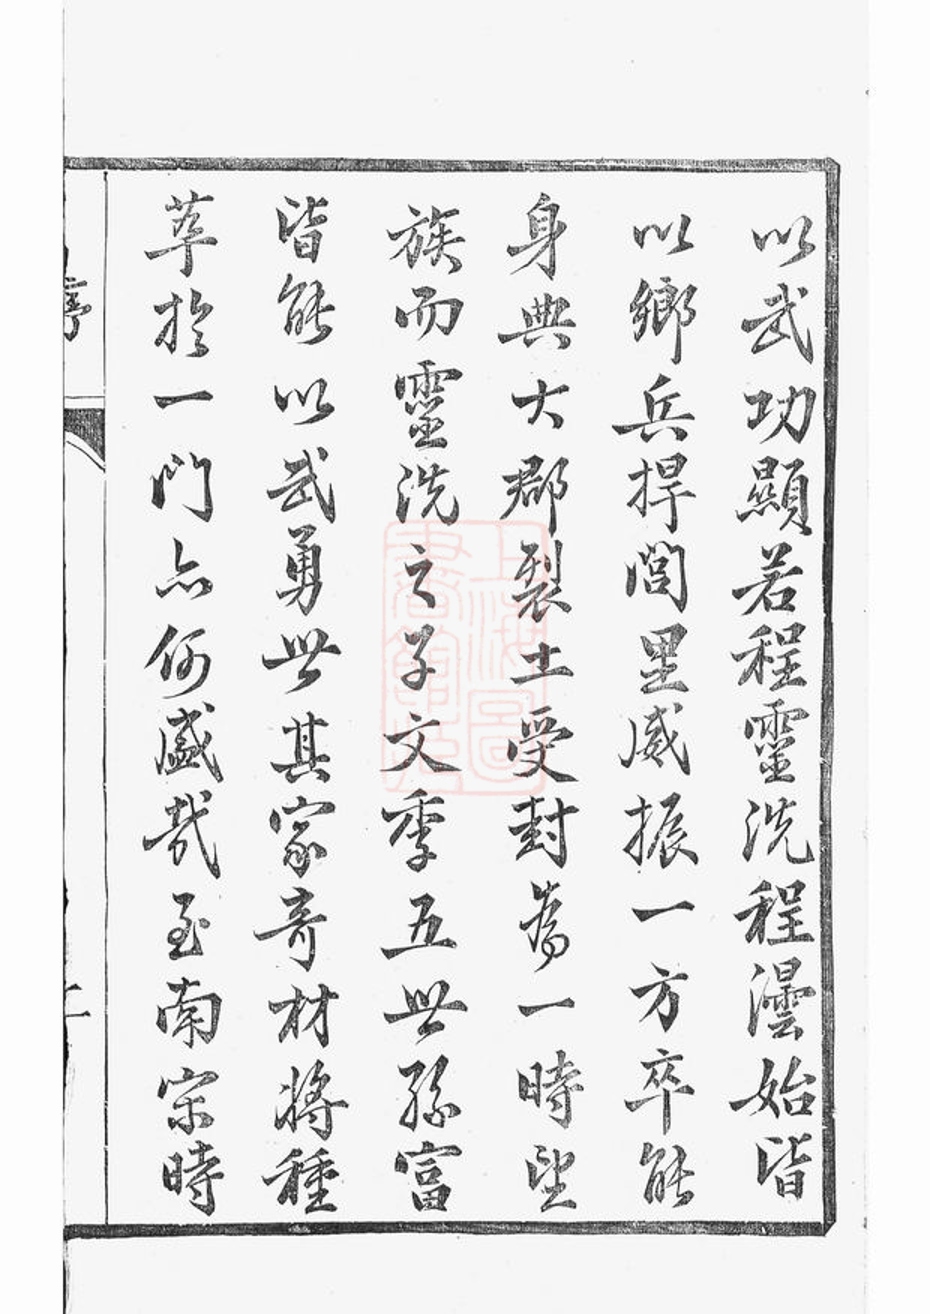 以武功顯若程靈洗程澐始皆
以鄉兵捍閭里威振一方卒能
身典大郡裂土受封為一時望
族而靈洗之子文季五世孫富
皆能以武勇世其家奇材將種
萃於一門亦何盛哉至南宋時
序
上海圖書館藏